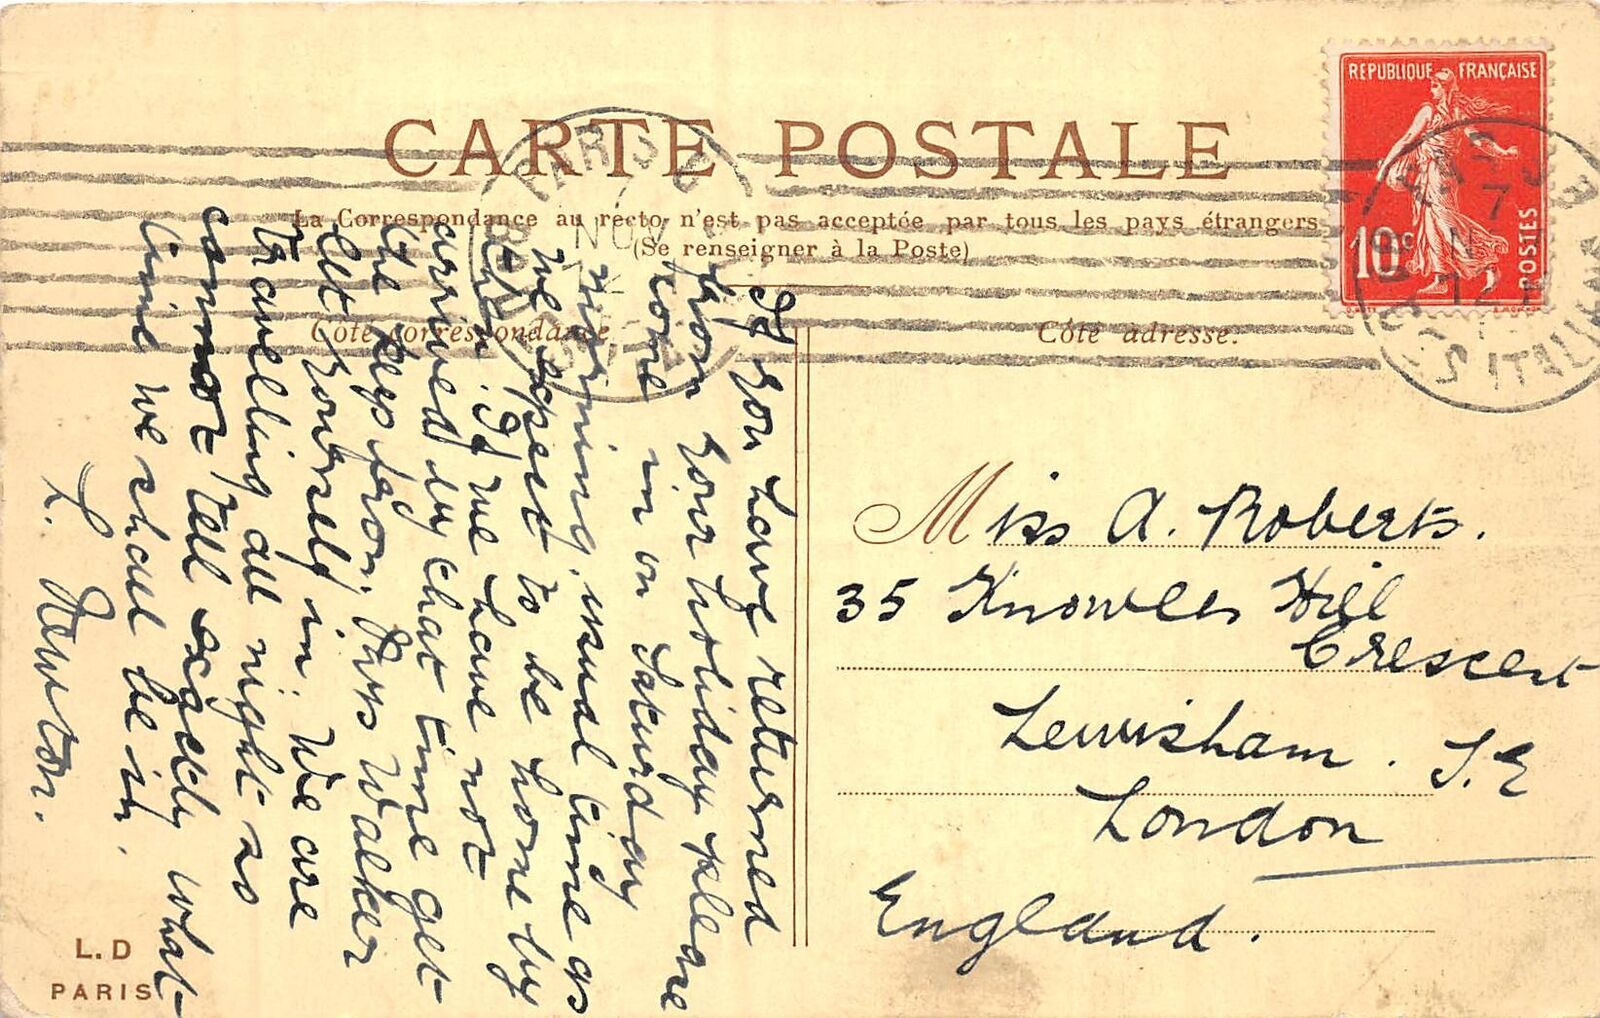 CARTE POSTALE
La Correspondance au recto n'est pas acceptée par tous les pays étrangers
(Se renseigner à la Poste)
Côté correspondance
Côté adresse.
REPUBLIQUE FRANÇAISE
10c
POSTES
PARIS
7
12
ITALIENS
If you have returned
from your holiday please
come in on Saturday
morning, usual time as
we expect to be home by
then. If we have not
arrived by that time get
the key from Mrs Walker
let yourself in. We are
travelling all night so
cannot tell exactly what
time we shall be in.
L. Newton.
Miss A. Roberts.
35 Knowles Hill
Crescent
Lewisham. S.E
London
England.
L.D
PARIS